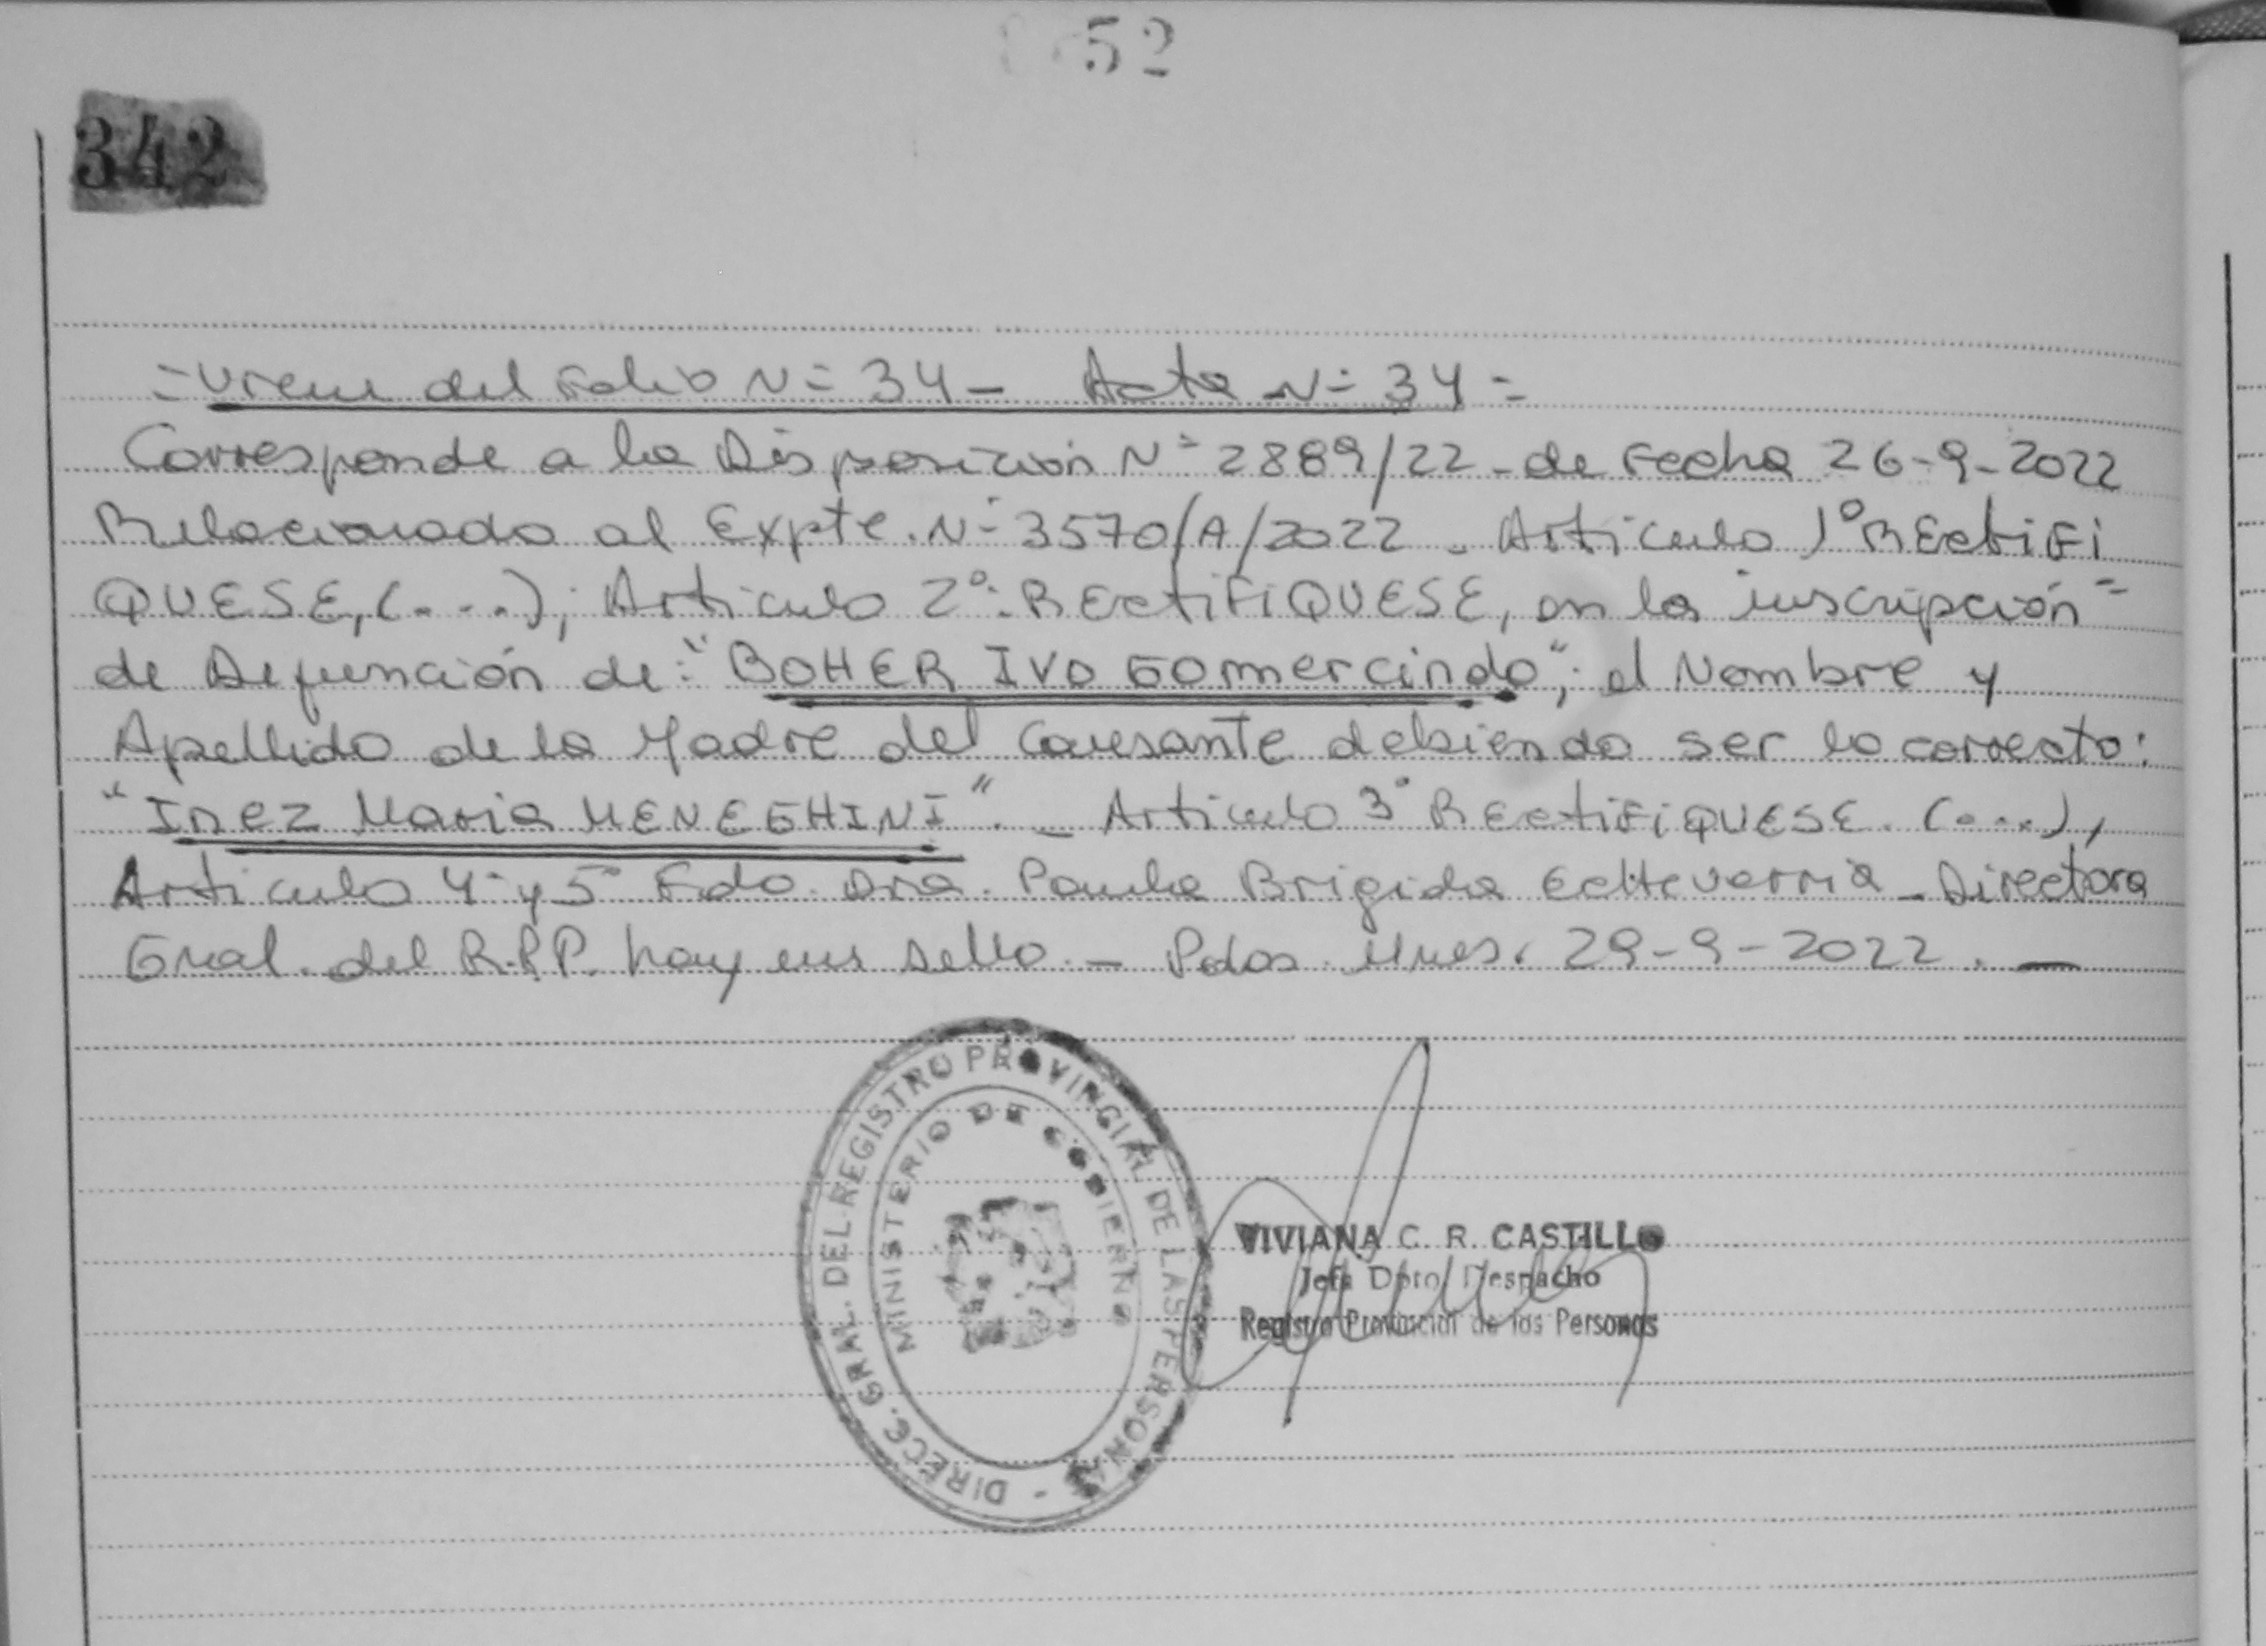 52
342
= Viene del Folio N= 34 - Acta N= 34 =
Corresponde a la Disposición N= 2889/22 - de Fecha 26-9-2022
Relacionado al Expte. N= 3570/A/2022 - Articulo 1° RECtiFi
QUESE, (. . .); Articulo 2°: RECtiFiQUESE, en la inscripción =
de Defunción de: "BOHER IVO Gomercindo"; el Nombre y
Apellido de la Madre del Causante debiendo ser lo correcto:
"Inez Maria MENEGHINI". - Articulo 3° RECtiFiQUESE. (....),
Articulo 4° y 5° Fdo. Dra. Paula Brigida Echeverria - Directora
Gral. del R.P.P. hay un sello. - Pdas. Mnes. 29-9-2022. -
DIRECC. GRAL. DEL REGISTRO PROVINCIAL DE LAS PERSONAS -
MINISTERIO DE GOBIERNO
VIVIANA C. R. CASTILLO
Jefa Dpto. Despacho
Registro Provincial de las Personas